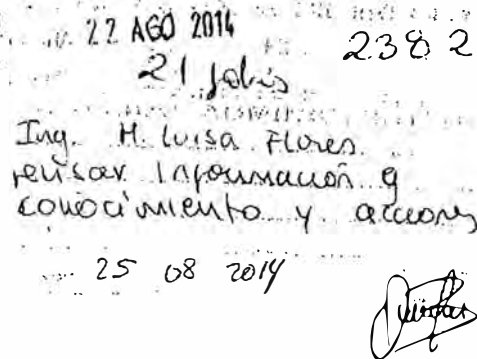 22 AGO 2014
2382
21 fobis
Ing. H. Luisa Flores.
revisar Información y
conocimiento y acciones
25 08 2014